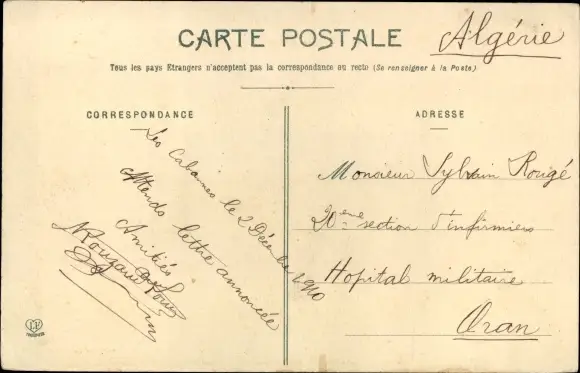 CARTE POSTALE
Algérie
Tous les pays Etrangers n'acceptent pas la correspondance au recto (Se renseigner à la Poste)
CORRESPONDANCE
Les Cabannes le 2 Décembre 1910
Attends lettre annoncée
Amitiés
ADRESSE
Monsieur Sylvain Rougé
20eme section d'infirmiers
Hopital militaire
Oran